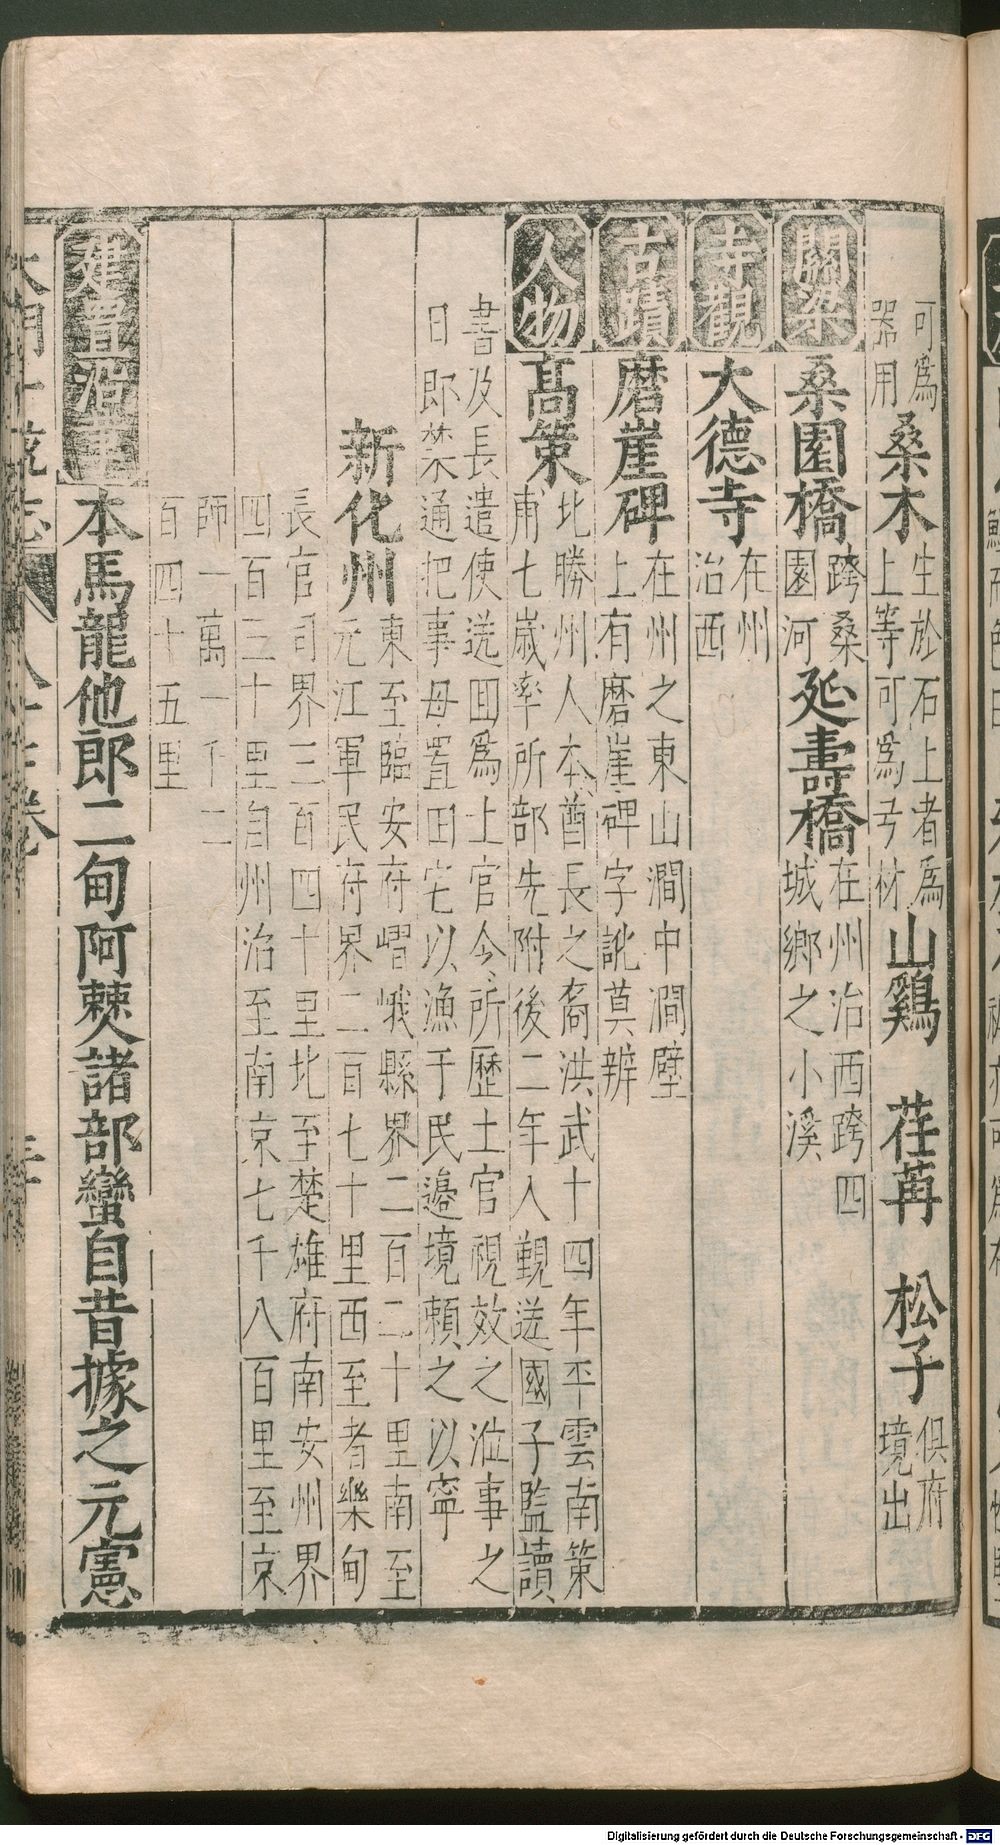 可爲
器用
桑木
生於石上者爲
上等可爲弓材
山鷄 荏苒 松子
俱府
境出
關梁
桑園橋
跨桑
園河
延壽橋
在州治西跨四
城鄉之小溪
寺觀
大德寺
在州
治西
古蹟
磨崖碑
在州之東山澗中澗壁
上有磨崖碑字訛莫辨
人物
高策
北勝州人本酋長之裔洪武十四年平雲南策
甫七歲率所部先附後二年入覲送國子監讀
書及長遣使送回爲土官令所歷土官視效之涖事之
日郎禁通把事毋置田宅以漁于民邊境賴之以寧
新化州
東至臨安府嶍峨縣界二百二十里南至
元江軍民府界二百七十里西至者樂甸
長官司界三百四十里北至楚雄府南安州界
四百三十里自州治至南京七千八百里至京
師一萬一千二
百四十五里
建置沿革
本馬龍他郎二甸阿僰諸部蠻自昔據之元憲